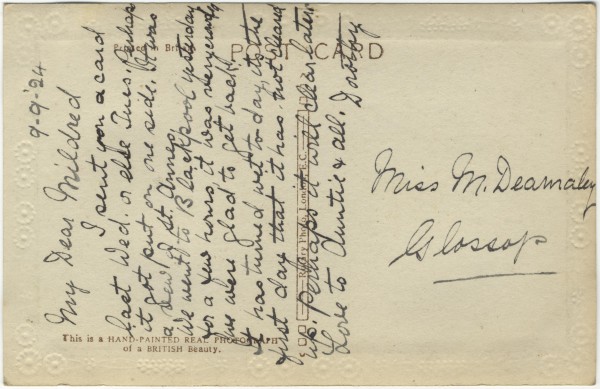 POST CARD
Printed in Britain
9-9-'24
My Dear Mildred
I sent you a card
last Wed. or else Tues. Perhaps
it got put on one side. It was
a view of St. Annes.
We went to Blackpool yesterday
for a few hours, it was very windy
& we were glad to get back.
It has turned wet to-day, it's the
first day that it has not cleared
up, perhaps it will clear later
Love to Auntie & all. Dorothy
Rotary Photo, London, E.C.
Miss M. Dearnaley
Glossop
This is a HAND-PAINTED REAL PHOTOGRAPH
of a BRITISH Beauty.